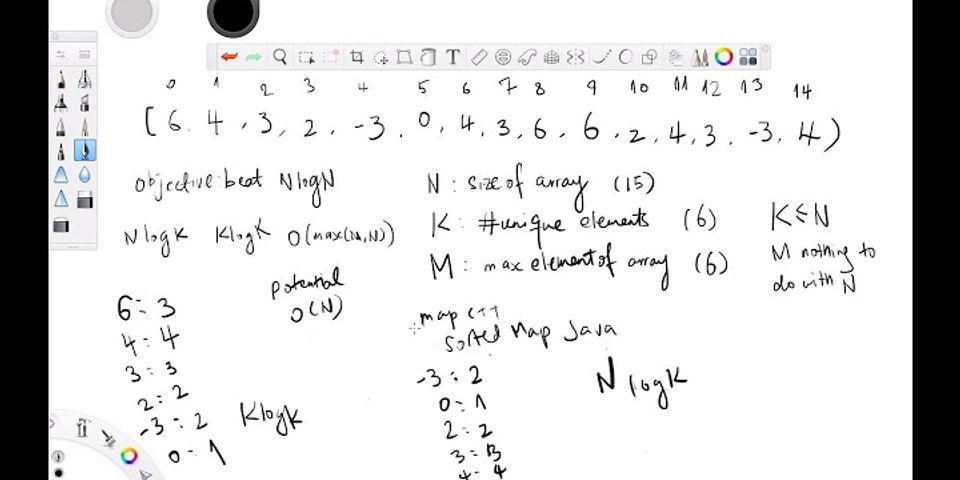 0 1 2 3 4 5 6 7 8 9 10 11 12 13 14
[6, 4, 3, 2, -3, 0, 4, 3, 6, 6, 2, 4, 3, -3, 4)
objective: beat NlogN
N : size of array (15)
NlogK KlogK O(max(M,N))
K : #unique elements (6)
K≤N
M : max element of array (6)
M nothing to
do with N
potential
O(N)
6: 3
4: 4
3: 3
2: 2
-3: 2
0: 1
KlogK
map C++
Sorted Map Java
-3: 2
0: 1
2: 2
3: 3
4: 4
NlogK
T